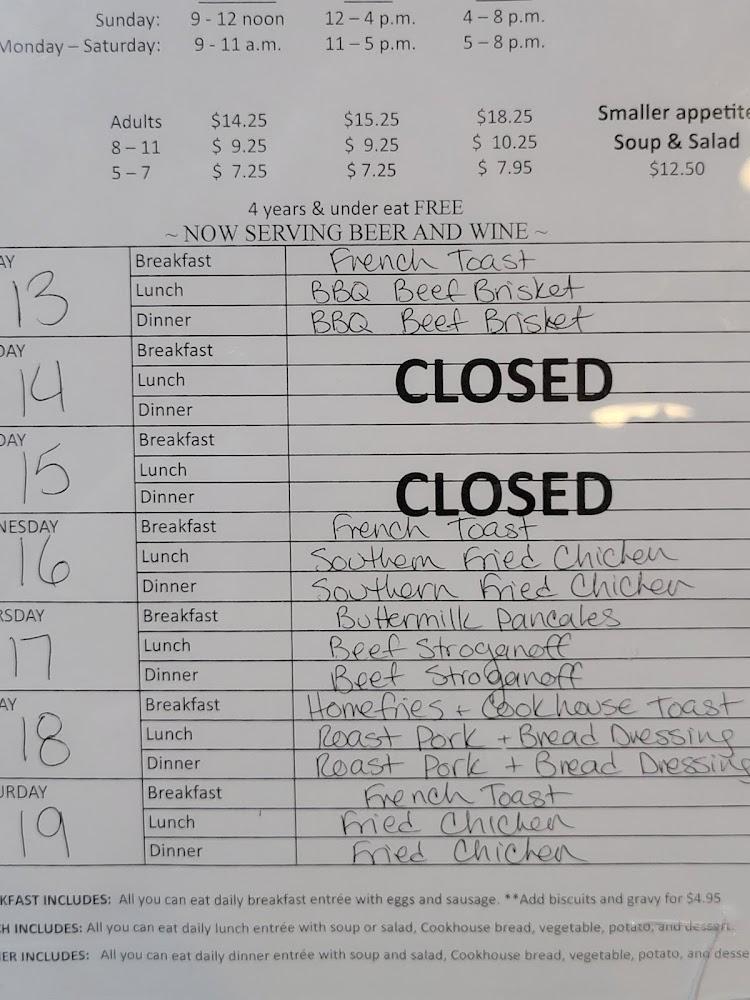 Sunday: 9 - 12 noon 12 – 4 p.m. 4 – 8 p.m.
Monday – Saturday: 9 - 11 a.m. 11 – 5 p.m. 5 – 8 p.m.
Adults $14.25 $15.25 $18.25 Smaller appetite
8 – 11 $ 9.25 $ 9.25 $ 10.25 Soup & Salad
5 – 7 $ 7.25 $ 7.25 $ 7.95 $12.50
4 years & under eat FREE
~ NOW SERVING BEER AND WINE ~
AY Breakfast French Toast
13 Lunch BBQ Beef Brisket
Dinner BBQ Beef Brisket
DAY Breakfast
14 Lunch CLOSED
Dinner
DAY Breakfast
15 Lunch
Dinner CLOSED
NESDAY Breakfast French Toast
16 Lunch Southern Fried Chicken
Dinner Southern Fried Chicken
RSDAY Breakfast Buttermilk Pancakes
17 Lunch Beef Stroganoff
Dinner Beef Stroganoff
AY Breakfast Homefries + Cookhouse Toast
18 Lunch Roast Pork + Bread Dressing
Dinner Roast Pork + Bread Dressing
URDAY Breakfast French Toast
19 Lunch Fried Chicken
Dinner Fried Chicken
KFAST INCLUDES: All you can eat daily breakfast entrée with eggs and sausage. **Add biscuits and gravy for $4.95
H INCLUDES: All you can eat daily lunch entrée with soup or salad, Cookhouse bread, vegetable, potato, and dessert.
ER INCLUDES: All you can eat daily dinner entrée with soup and salad, Cookhouse bread, vegetable, potato, and desse